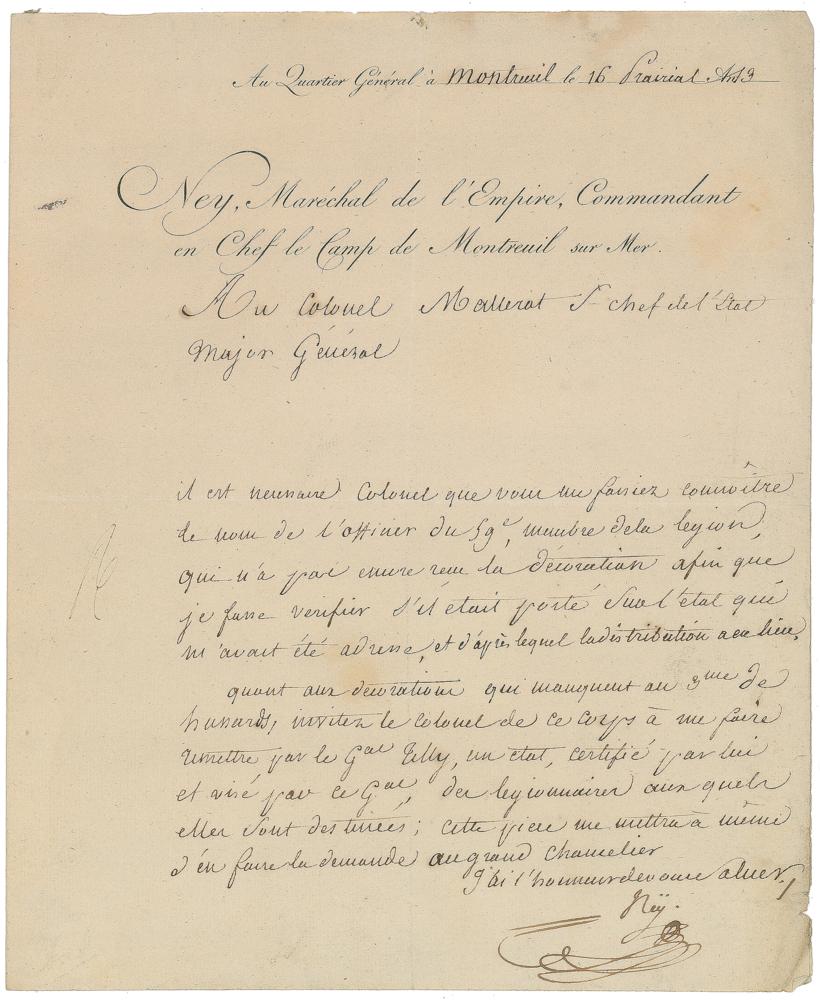 Au Quartier Général à Montreuil le 16 Prairial An 13
Ney, Maréchal de l'Empire, Commandant
en Chef le Camp de Montreuil sur Mer.
Au Colonel Mallerot Sr chef de l'Etat
Major Général
il est necessaire Colonel que vous me fassiez connoître
le nom de l'officier du 59e, membre de la legion,
qui n'a pas encore recu la décoration afin que
je fasse verifier s'il était porté sur l'etat qui
m'avait été adressé, et d'après lequel la distribution a eu lieu.
quant aux decorations qui manquent au 3me de
hussards, invitez le colonel de ce corps à me faire
remettre par le Gal Tilly, un état, certifié par lui
et visé par ce Gal, des legionnaires aux quels
elles sont destinées; cette piece me mettra à même
d'en faire la demande au grand chancelier
J'ai l'honneur de vous saluer
Ney.